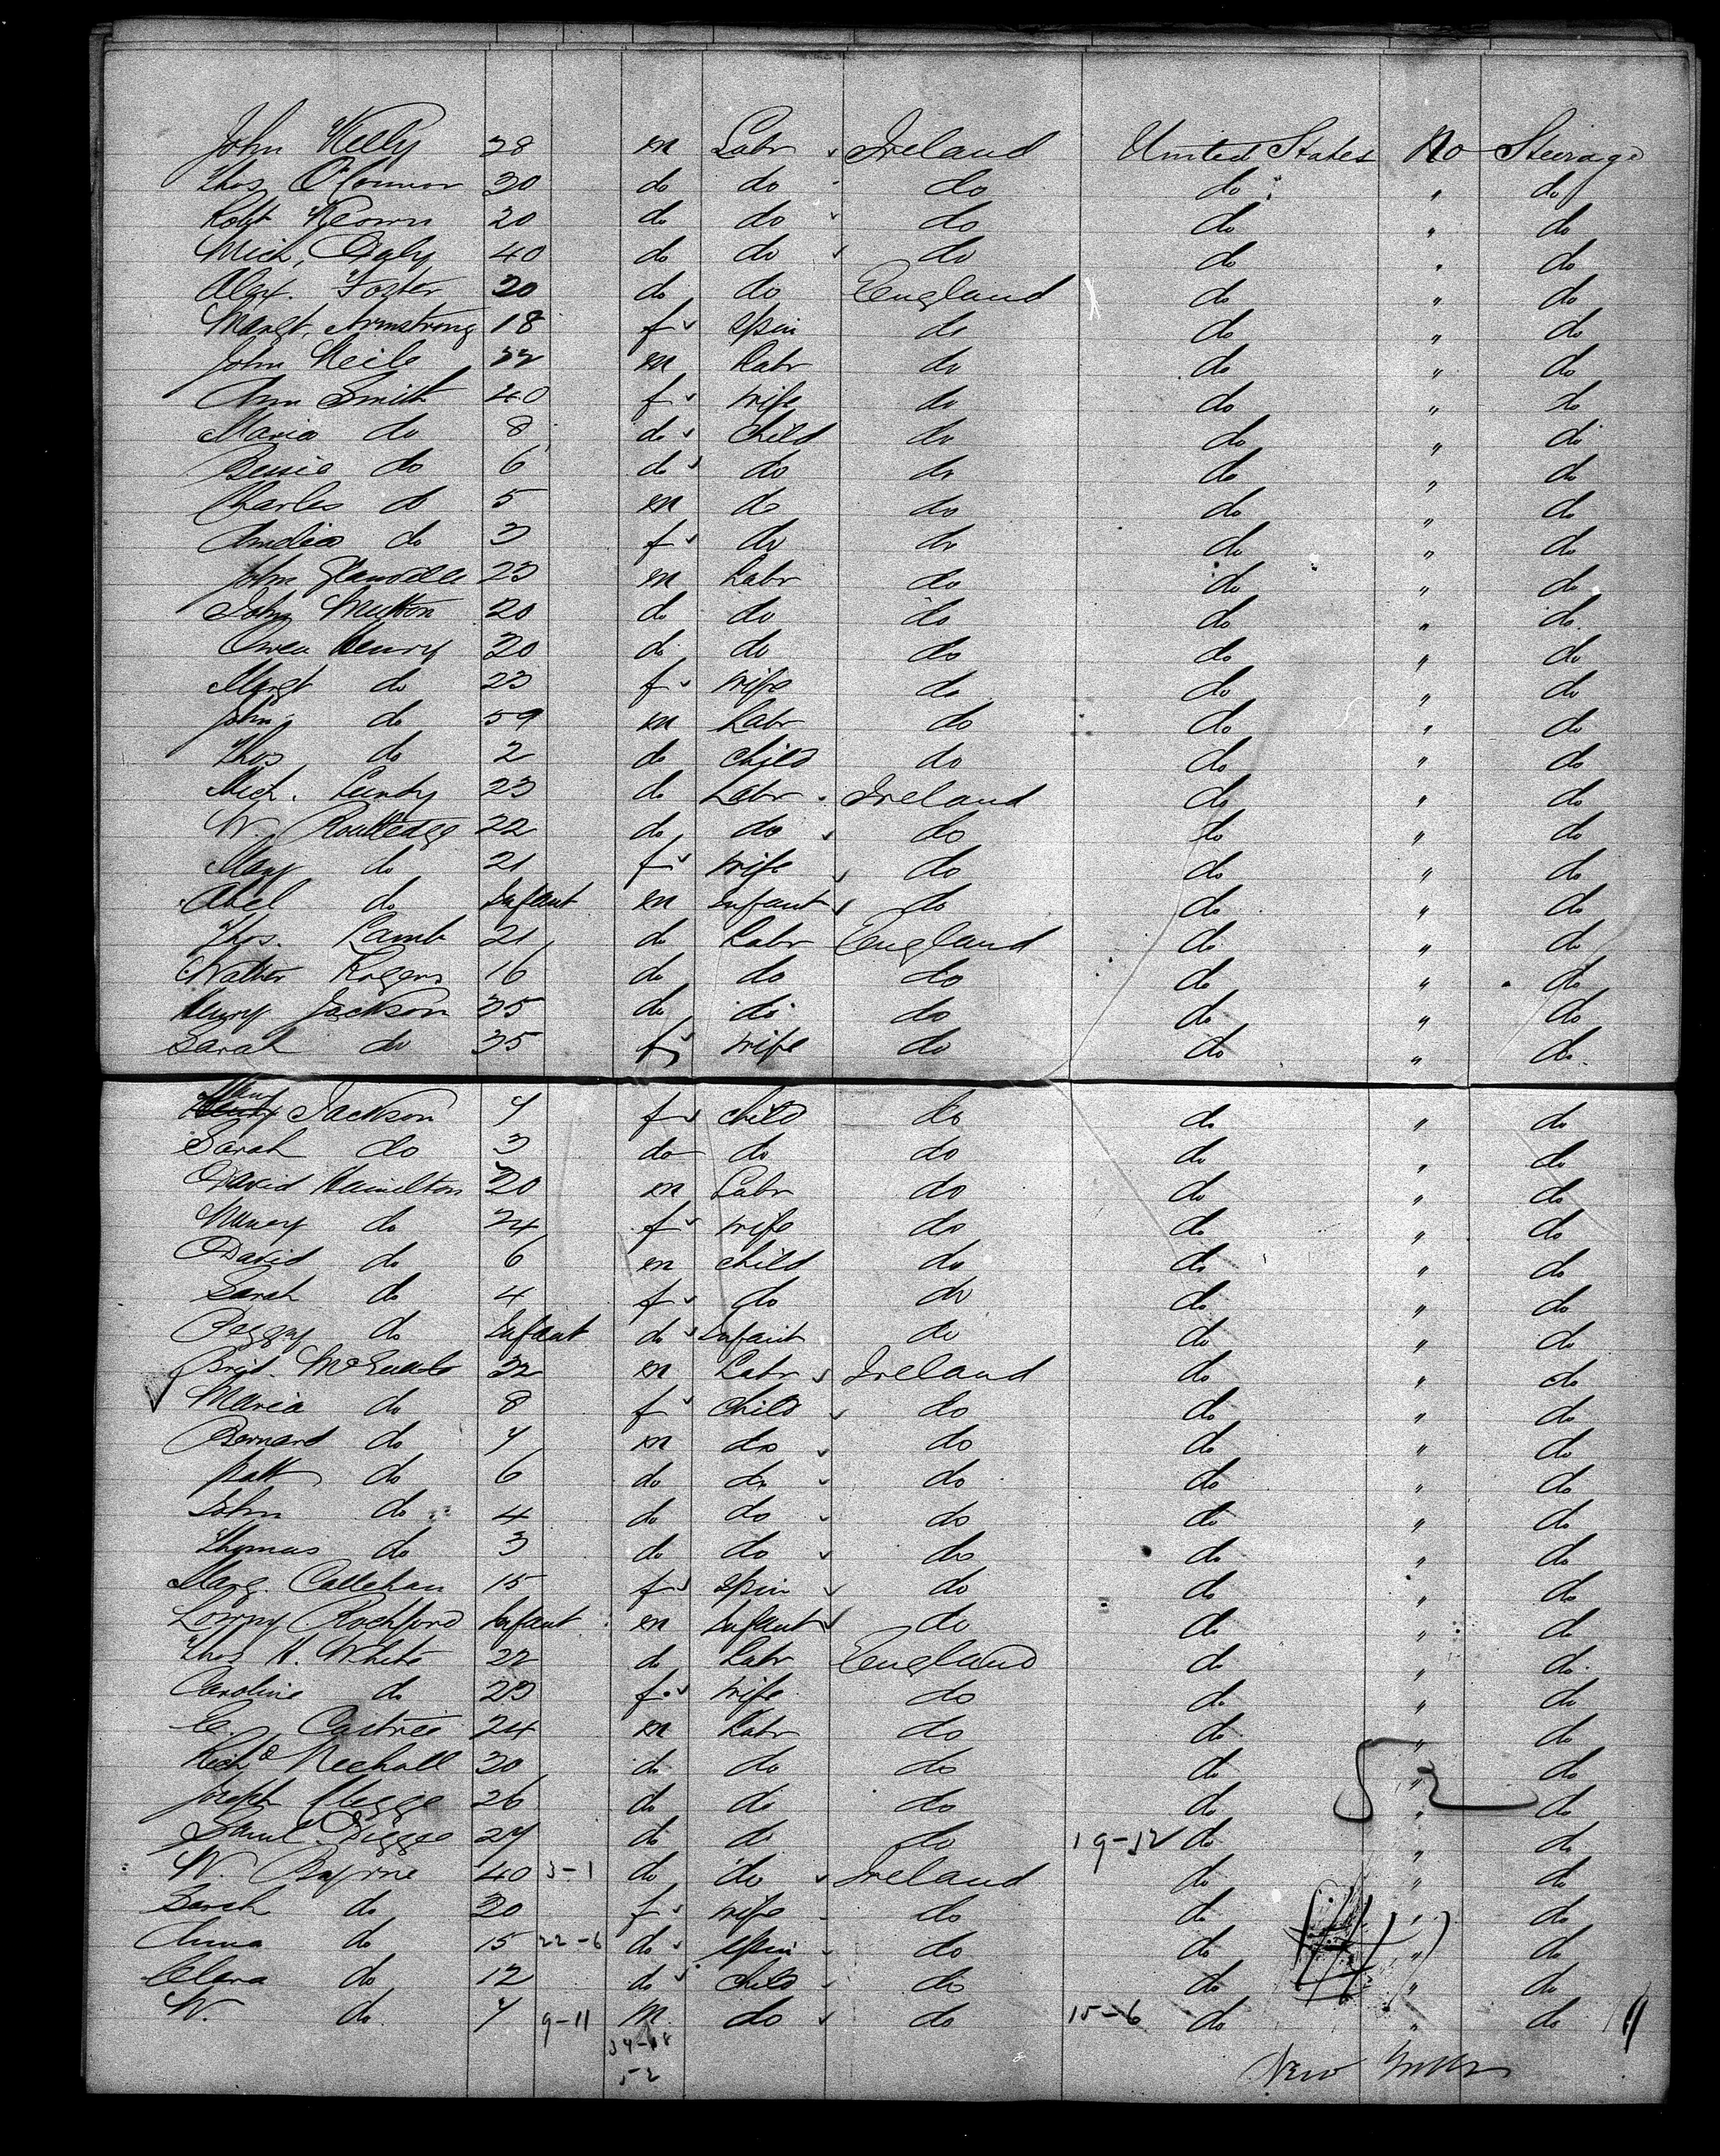 John Kelly 28 m Labr Ireland United States No Steerage
Thos O'Connor 30 do do do do " do
Robt Keown 20 do do do do " do
Mich, Daly 40 do do do do " do
Alex. Foster 20 do do England do " do
Margt. Armstrong 18 f Spin do do " do
John Neile 22 m Labr do do " do
Ann Smith 40 f wife do do " do
Maria do 8 do child do do " do
Bessie do 6 do do do do " do
Charles do 5 m do do do " do
Amelia do 3 f do do do " do
John Glanville 23 m Labr do do " do
John Mutton 20 do do do do " do
Owen Henry 20 do do do do " do
Margt do 23 f wife do do " do
John do 59 m Labr do do " do
Thos do 2 do child do do " do
Mich. Lundy 23 do Labr Ireland do " do
W. Routledge 22 do do do do " do
Mary do 21 f wife do do " do
Abel do Infant m Infant do do " do
Thos. Lamb 21 do Labr England do " do
Walter Rogers 16 do do do do " do
Henry Jackson 35 do do do do " do
Sarah do 35 f wife do do " do
Mary Jackson 7 f child do do " do
Sarah do 3 do do do do " do
David Hamilton 30 m Labr do do " do
Nancy do 24 f wife do do " do
David do 6 m child do do " do
Sarah do 4 f do do do " do
Peggy do Infant do Infant do do " do
Brid. 32 m Labr Ireland do " do
Maria do 8 f child do do " do
Bernard do 7 m do do do " do
Patk do 6 do do do do " do
John do 4 do do do do " do
Thomas do 3 do do do do " do
Marg. Callehan 15 f Spin do do " do
Rochford Infant m Infant do do " do
Thos H. White 22 do Labr England do " do
Caroline do 23 f wife do do " do
C. Castree 24 m Labr do do " do
Richd Nechall 30 do do do do " do
Joseph Clegge 26 do do do do " do
Saml. Digges 27 do do do 19-12 do " do
52
W. Byrne 40 3-1 do do Ireland do " do
Sarah do 30 f wife do do " do
Anna do 15 22-6 do spin do do " do
Clara do 12 do child do do " do
W. do 7 9-11 m do do 15-6 do " do
34-18
52
New